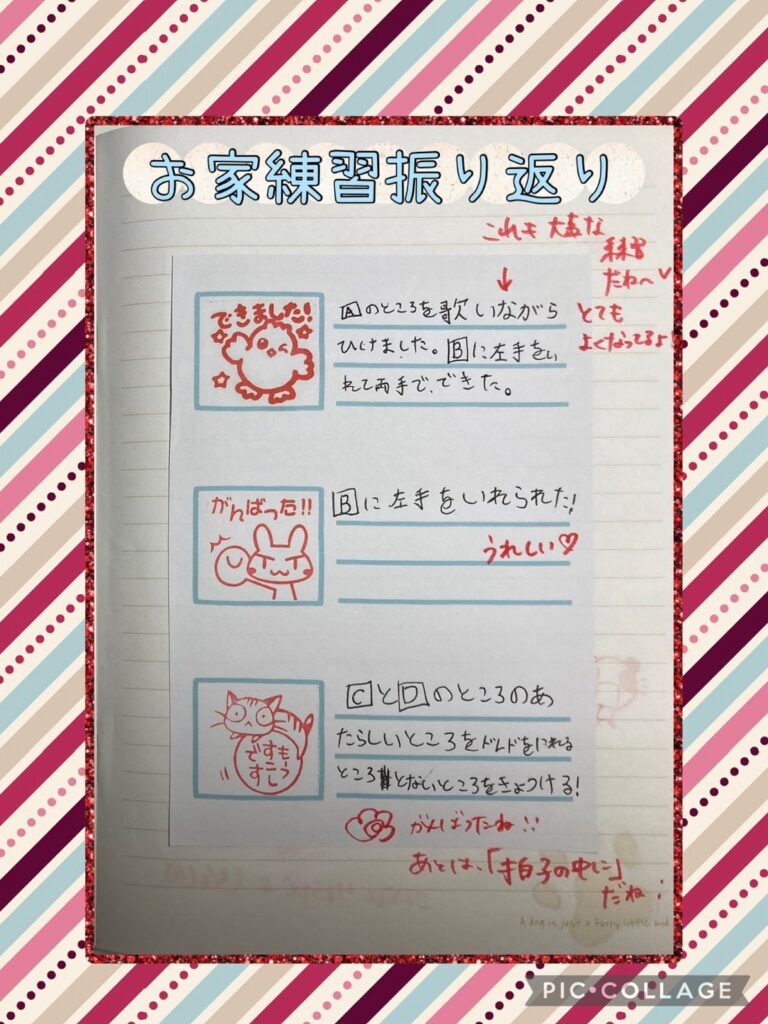 お家練習振り返り
これも 大事な
練習
だね〜
とても
よくなってるよ!
できました!
Aのところを歌いながら
ひけました。Bに左手をい
れて両手で、できた。
がんばった!!
Bに左手をいれられた!
うれしい♡
もう
すこし
です
CとDのところのあ
たらしいところをドレドをいれる
ところとないところをきょつける!
がんばったね!!
あとは、「拍子の中に」
だね!
A dog is just a furry little kid
PIC•COLLAGE